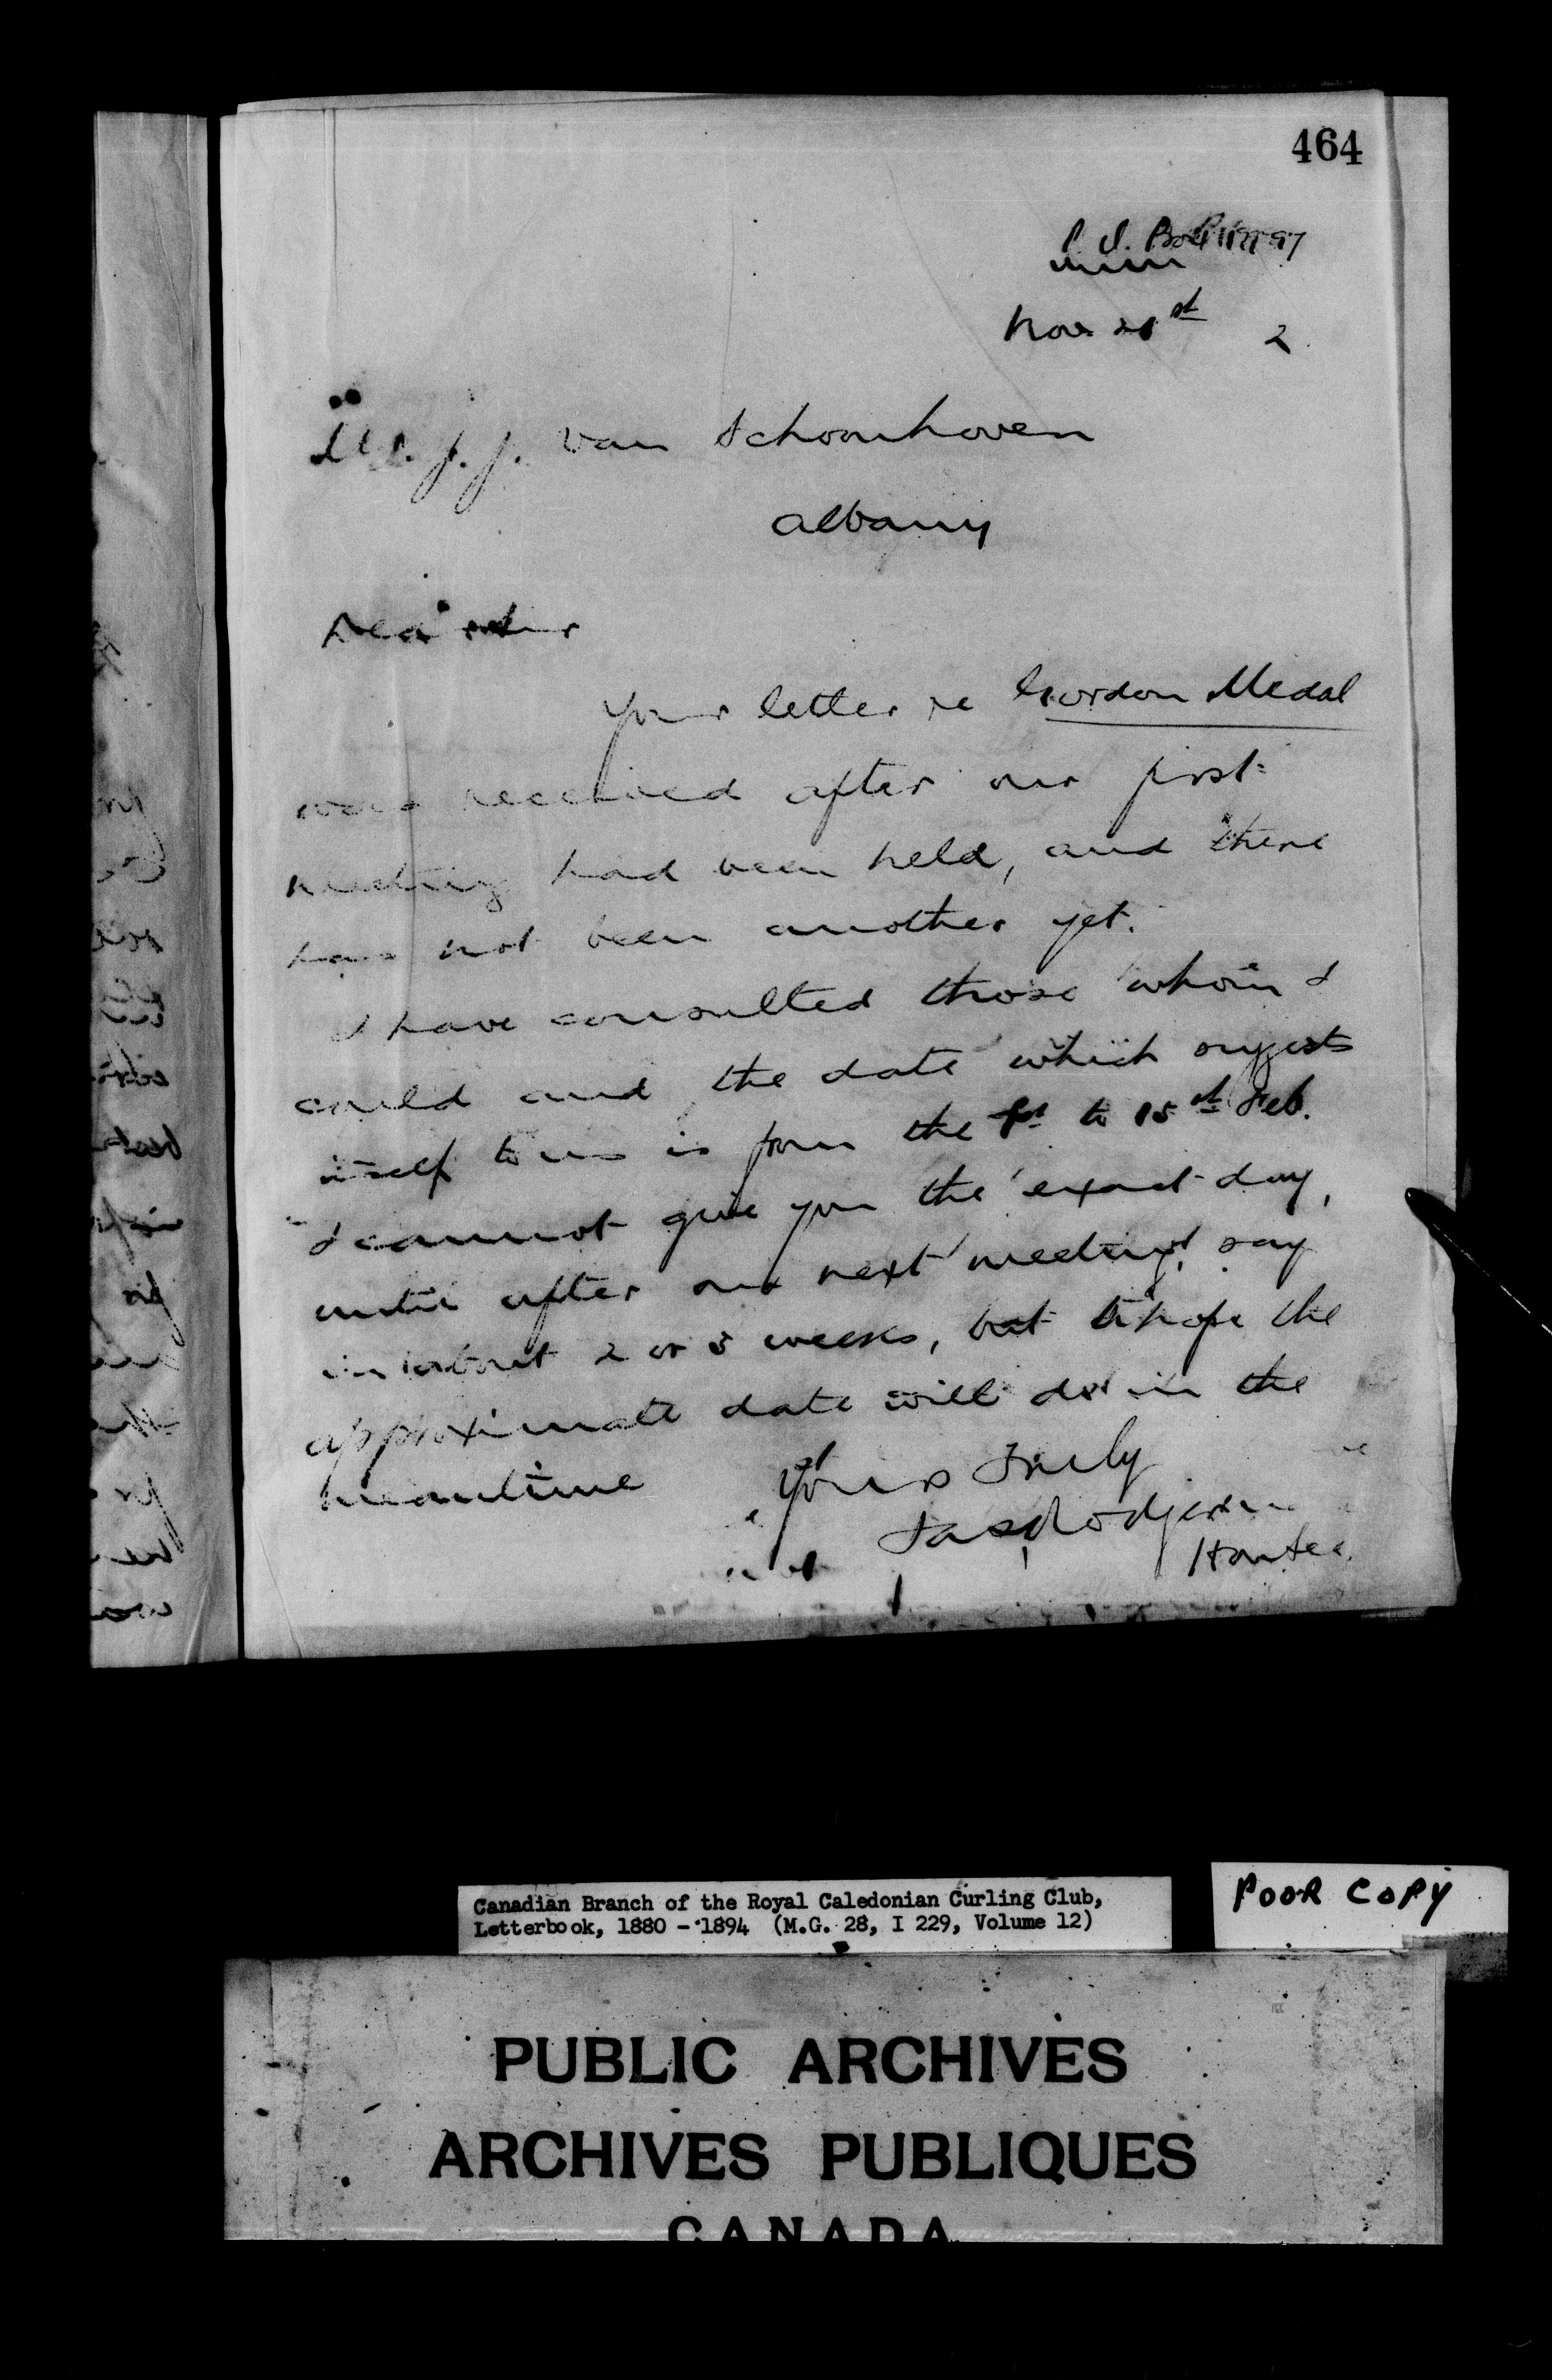 464
P. O. Box
Nov 21st 2
Mr. J. J. Van Schoonhoven
Albany
Dear Sir
Your letter re Gordon Medal
was received after our first
meeting had been held, and there
has not been another yet.
I have consulted those whom I
could and the date which suggests
itself to us is from the 1st to 15st Feb.
I cannot give you the exact day,
until after our next meeting, say
in about 2 or 3 weeks, but hope the
approximate date will do in the
meantime
Yours Truly
Jas Rodger
Hon Sec.
Canadian Branch of the Royal Caledonian Curling Club,
Letterbook, 1880 - 1894 (M.G. 28, I 229, Volume 12)
POOR COPY
PUBLIC ARCHIVES
ARCHIVES PUBLIQUES
CANADA